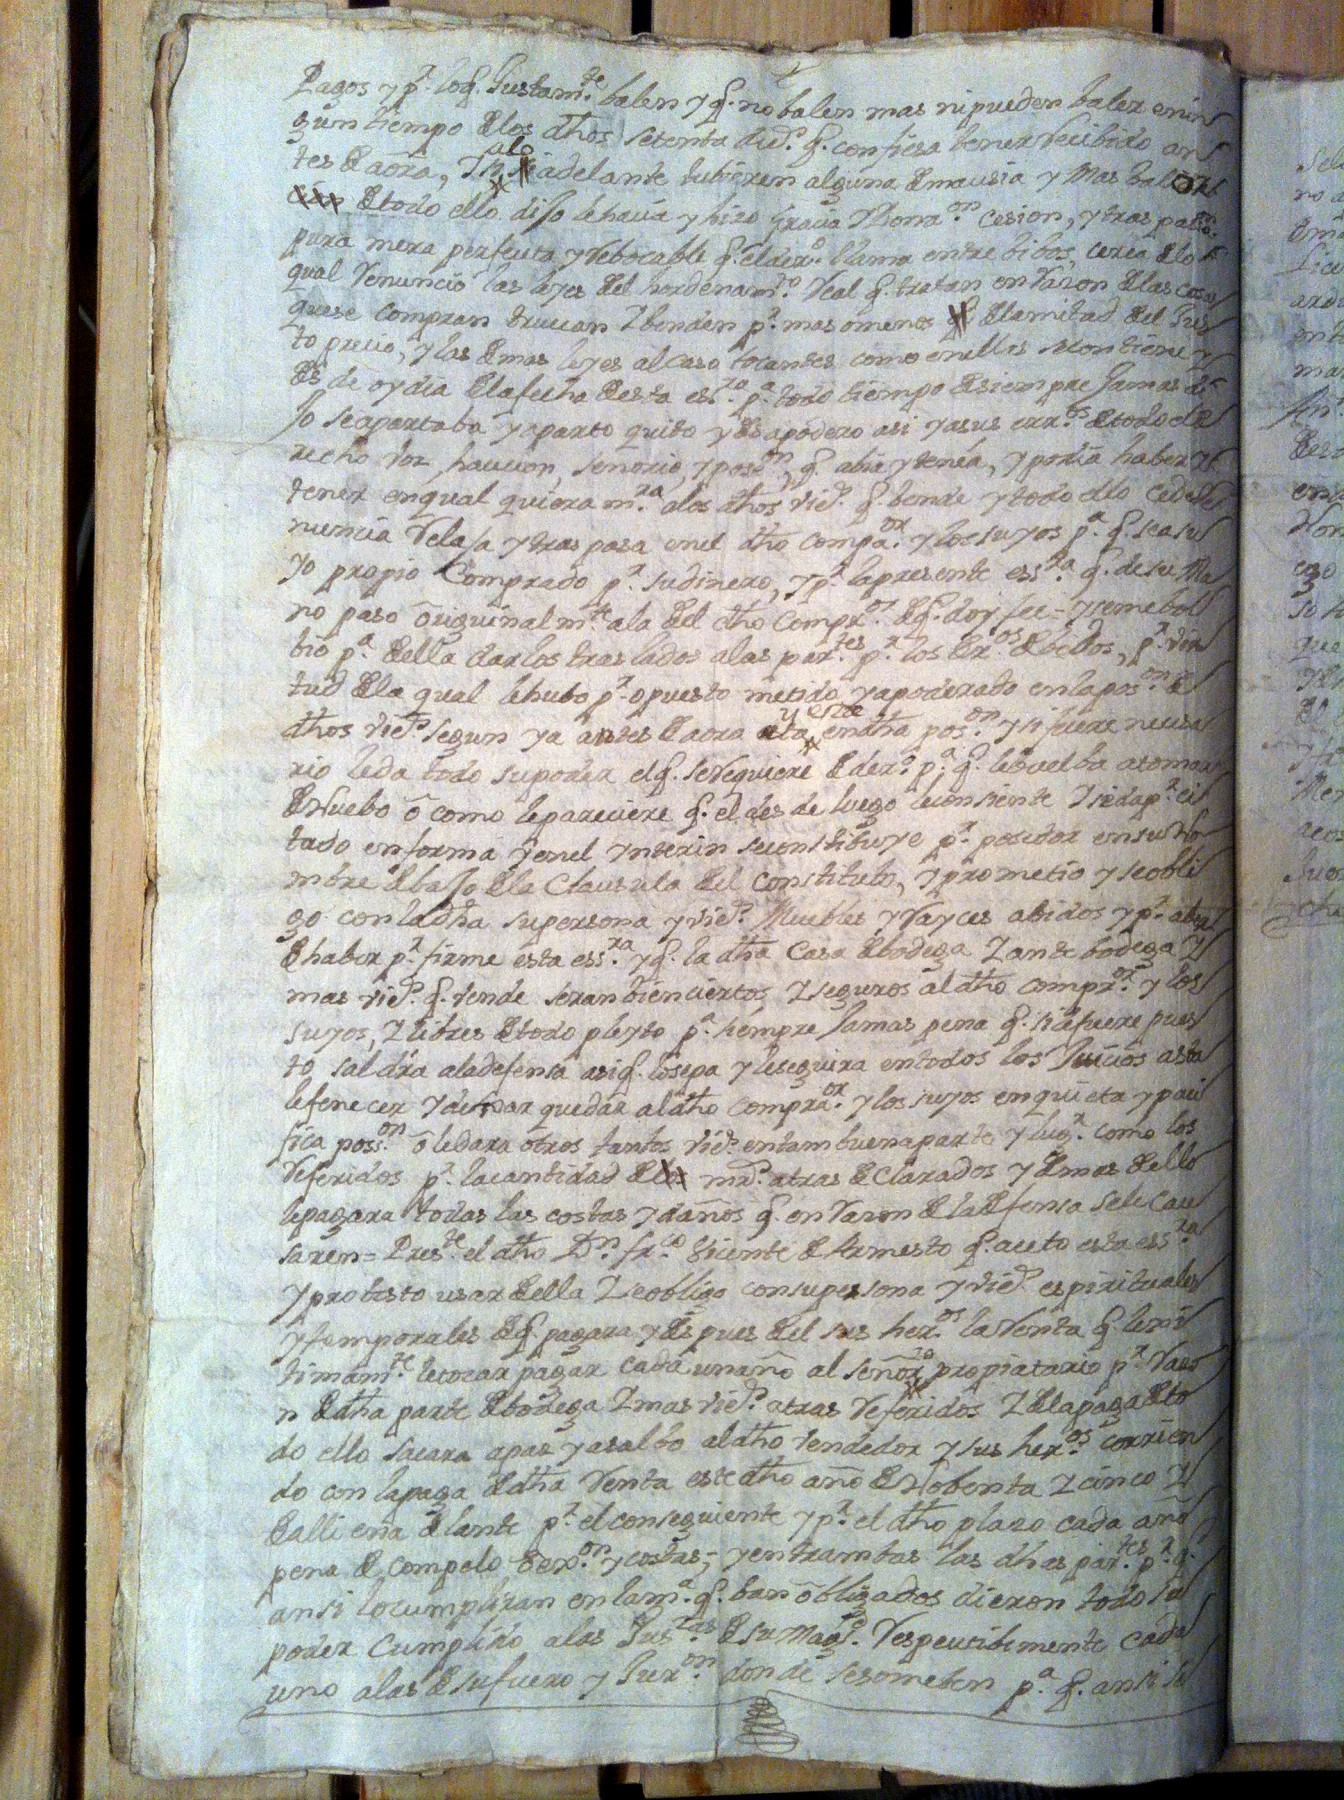 Pagos y p.r loq. Justam.te balen y q. no balen mas ni pueden baler enin
gun tiempo de los dhos setenta du.s q. confiesa tener Recibido an
tes de aora, I si alo adelante tubieren alguna demasia y Mas balor
de todo ello dijo le hacia y hizo gracia I Dona.on cesion, y traspasa.on
pura mera perfecta y Rebocable q. el der.o llama entre bibos, cerca de lo
qual Renuncio las leyes del hordenam.to Real q. tratan en Razon de las cosas
que se compran truecan I benden p.r mas o menos de la mitad del Jus
to precio, y las demas leyes al caso tocantes como en ellas se contiene y
des de oy dia de la fecha desta ess.ra p.a todo tiempo de siempre Jamas de
Jo se apartaba y aparto quito y desapodero asi y a sus err.os de todo el de
recho voz, haccion, senorio, y pos.on, q. abia y tenia, y podia haber y
tener en qual quiera m.ra a los dhos vie.s q. bende y todo ello cede Re
nuncia Relaja y traspasa en el dho compa.or y los suyos p.a q. sea su
yo propio Comprado p.r su dinero, y p.r la presente ess.ra q. de su Ma
no paso original m.te a la del dho Compr.or de q. doy fee = y se me bol
bio p.a della dar los traslados a las par.tes p.r los der.os debidos, p.r vir
tud de la qual le hubo p.r opuesto metido y apoderado en la pos.on de
dhos vie.s segun ya antes de aora y esta en dha pos.on y si fuere necesa
rio le da todo su poder el q. se Requiere de der.o p.a q. le buelba a tomar
de Nuebo o como le pareciere q. el des de luego le consiente I se da p.r ci
tado en forma y en el ynterin se constituye p.r posedor en su No
mbre debajo de la Clausula del Constituto, y prometio y se obli
go con la dha su persona y vie.s Muebles y Rayces abidos y p.r aber
de haber p.r firme esta ess.ra y q. la dha Casa de bodega I ante bodega I
mas vie.s q. vende seran bien ciertos I seguros al dho compr.or y los
suyos, I libres de todo pleyto p.a siempre Jamas pena q. si le fuere pues
to saldra a la defensa asi q. lo sepa y le seguira en todos los Juicios asta
le fenecer I dejar quedar al dho compra.or y los suyos en quieta y paci
fica posi.on o le dara otros tantos vie.s en tam buena parte y lug.r como los
Referidos p.r la cantidad de mr.s atras declarados y demas dello
le pagara todas las costas y daños q. en Razon de la defensa se le cau
saren = Pres.te el dho D.n fr.co Bicente de Armesto q. aceto esta ess.ra
y protesto usar della I se obligo con su persona y vie.s espirituales
y temporales de q. pagara y despues del sus her.os la Renta q. leni
timam.te le tocar pagar cada un año al señor propiatario p.r Razo
n de dha parte de bodega I mas vie.s atras Referidos I de la paga de to
do ello sacara apaz y a salbo al dho Vendedor y sus her.os corrien
do con la paga de dha Renta este dho año de Nobenta I cinco I
de alli en a delante p.r el conseguiente y p.r el dho plazo cada año
pena de compelo, dex.on y costas; y entrambas las dhas par.tes p.a q.
ansi lo cumpliran en la m.a q. ban obligados dieron todo su
poder Cumplido a las Jus.zas de su Mag.d Respectibemente cada
uno a las de su fuero y Jur.on donde se someten p.a q. ansi se